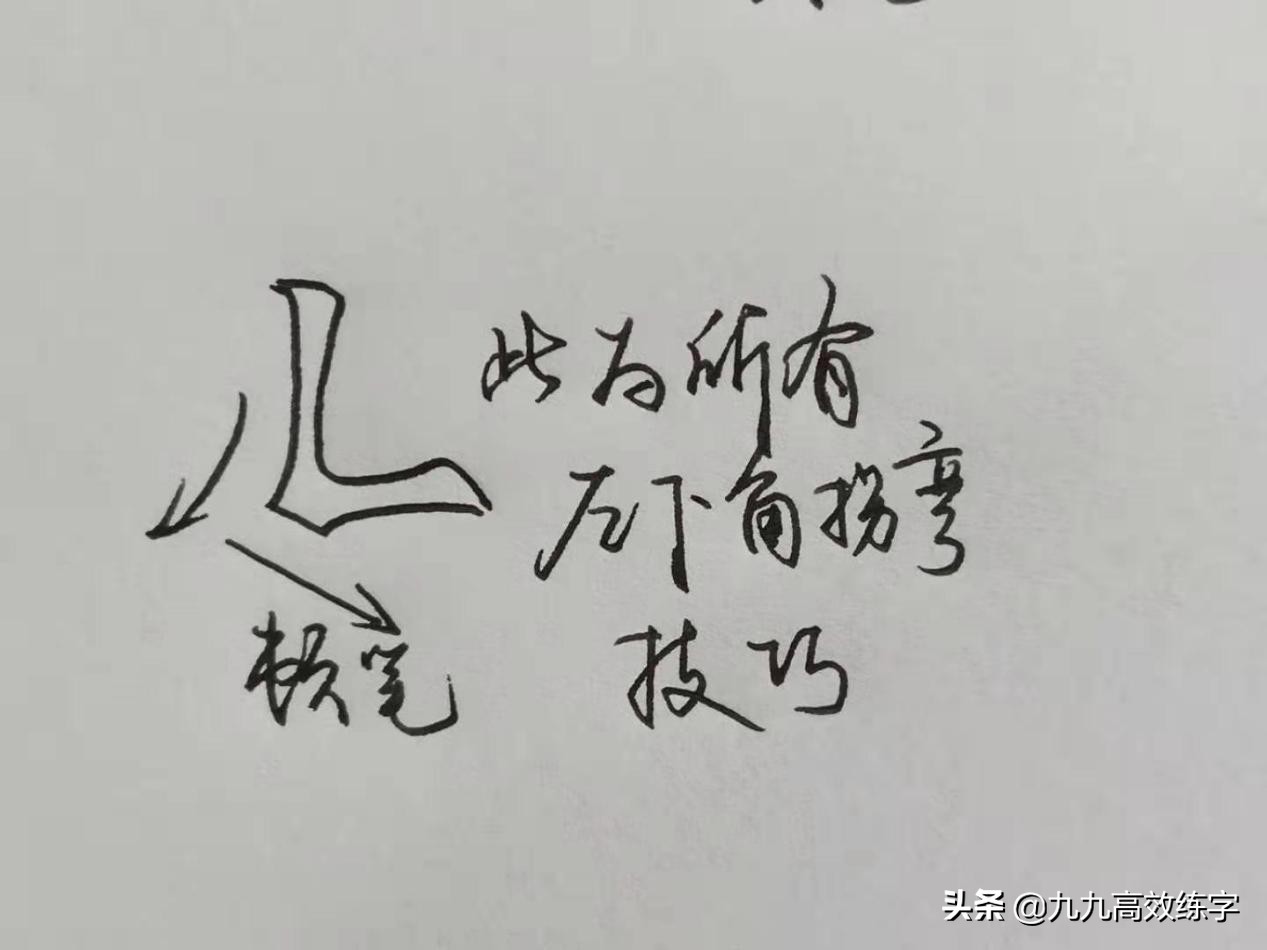 此为所有
左下角拐弯
顿笔
技巧
头条 @九九高效练字